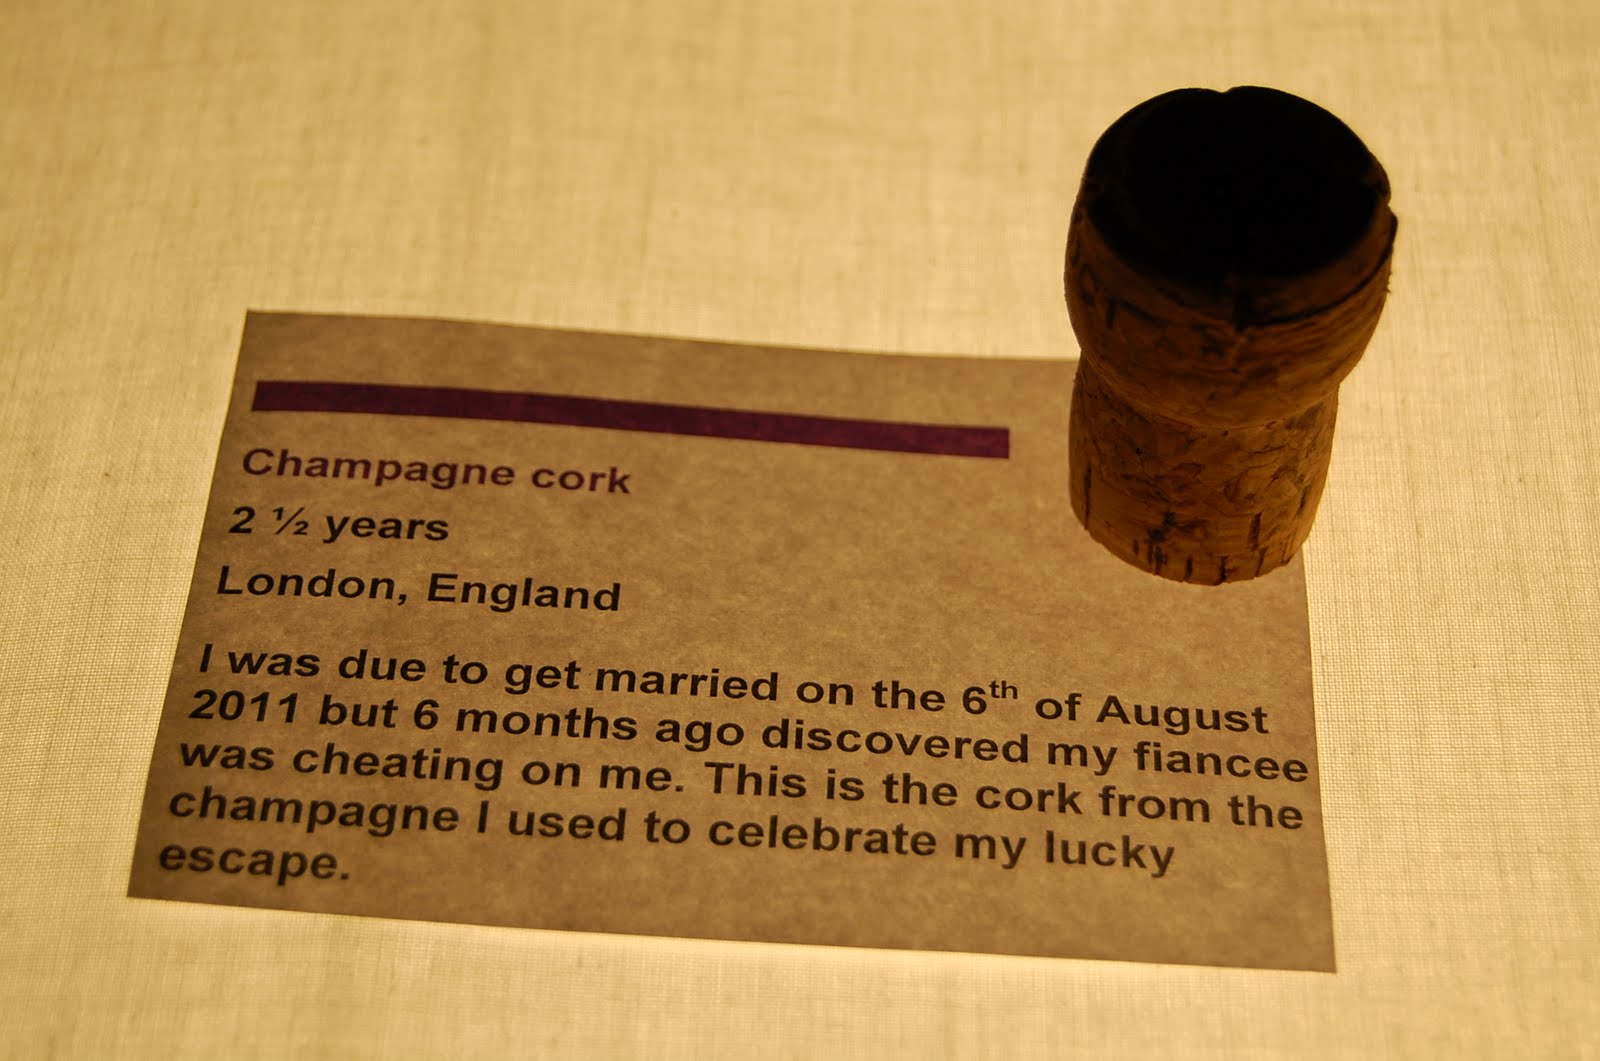 Champagne cork
2 ½ years
London, England
I was due to get married on the 6th of August
2011 but 6 months ago discovered my fiancee
was cheating on me. This is the cork from the
champagne I used to celebrate my lucky
escape.